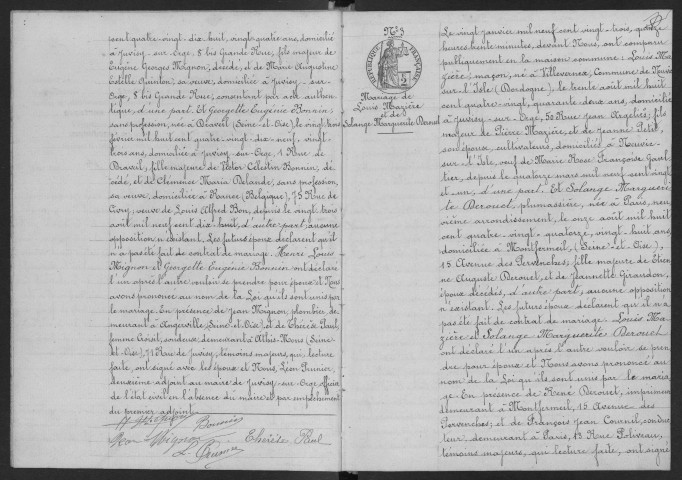 sent quatre-vingt-dix-huit, vingt-quatre ans, domicilié
à Juvisy-sur-Orge, 8 bis Grande Rue, fils majeur de
Eugène Georges Mignon, décédé, et de Marie Augustine
Estelle Quinton, sa veuve, domiciliée à Juvisy-sur-
Orge, 8 bis Grande Rue, consentant par acte authen-
tique, d'une part. Et Georgette Eugénie Bonnin,
sans profession, née à Draveil (Seine-et-Oise), le vingt trois
février mil huit cent quatre-vingt-dix-neuf, vingt-
trois ans, domiciliée à Juvisy-sur-Orge, 1 Rue de
Draveil, fille majeure de Victor Célestin Bonnin, dé-
cédé, et de Clémence Maria Delande, sans profession,
sa veuve, domiciliée à Rance (Belgique), 75 Rue de
veuve de Louis Alfred Bon, depuis le vingt-trois
août mil neuf cent dix-huit, d'autre part, aucune
opposition n'existant. Les futurs époux déclarent qu'il
n'a pas été fait de contrat de mariage. Henri Louis
Mignon et Georgette Eugénie Bonnin ont déclaré
l'un après l'autre vouloir se prendre pour époux et Nous
avons prononcé au nom de la Loi qu'ils sont unis par
le mariage. En présence de Jean Mignon, plombier, de-
meurant à Angerville (Seine-et-Oise), et de Thérèse Paul,
femme soudeuse, demeurant à Athis-Mons (Seine-
et-Oise), 11 Rue de Juvisy, témoins majeurs, qui, lecture
faite, ont signé avec les époux et Nous, Léon Prunier,
deuxième adjoint au maire de Juvisy-sur-Orge, officier
de l'état civil en l'absence du maire et par empêchement
du premier adjoint.
Bonnin
Jean Mignon Thérèse Paul
L. Prunier
N° 5
RÉPUBLIQUE FRANÇAISE
Mariage de
Louis Mazière
et de
Solange Marguerite Derouet
Le vingt janvier mil neuf cent vingt-trois, quinze
heures trente minutes, devant Nous, ont comparu
publiquement en la maison commune : Louis Ma-
zière, maçon, né à Villeverneix, Commune de Neuvic
sur-l'Isle (Dordogne), le trente août mil huit
cent quatre-vingt, quarante-deux ans, domicilié
à Juvisy-sur-Orge, 50 Rue Jean Argeliès, fils
majeur de Pierre Mazière, et de Jeanne Petit,
son épouse, cultivateurs, domiciliés à Neuvic-
sur-l'Isle, veuf de Marie Rose Françoise Gaul-
tier, depuis le quatorze mars mil neuf cent vingt-
et-un, d'une part. Et Solange Margueri-
te Derouet, plumassière, née à Paris, neu-
vième arrondissement, le onze août mil huit
cent quatre-vingt-quatorze, vingt-huit ans,
domiciliée à Montfermeil, (Seine-et-Oise),
15 Avenue des Pervenches, fille majeure de Etien-
ne Auguste Derouet, et de Jeannette Girardon,
époux décédés, d'autre part, aucune opposition
n'existant. Les futurs époux déclarent qu'il n'a
pas été fait de contrat de mariage. Louis Ma-
zière et Solange Marguerite Derouet
ont déclaré l'un après l'autre vouloir se pren-
dre pour époux et Nous avons prononcé au
nom de la Loi qu'ils sont unis par le maria-
ge. En présence de René Derouet, imprimeur,
demeurant à Montfermeil, 15 Avenue des
Pervenches, et de François Jean Cournil, conduc-
teur, demeurant à Paris, 13 Rue Poliveau,
témoins majeurs, qui, lecture faite, ont signé